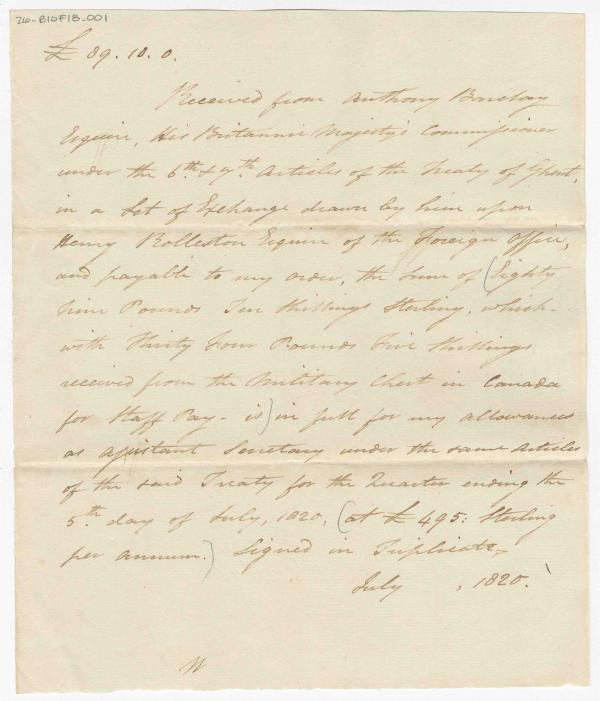 26-B10F18_001
£ 89. 10. 0.
Received from Anthony Barclay
Esquire, His Britannic Majesty's Commissioner
under the 6th & 7th Articles of the Treaty of Ghent,
in a Set of Exchange drawn by him upon
Henry Rolleston Esquire of the Foreign Office,
and payable to my order, the Sum of (Eighty
Nine Pounds Ten Shillings Sterling, which-
with Thirty Four Pounds Five Shillings
received from the Military Chest in Canada
for Staff Pay - is) in full for my allowances
as assistant Secretary under the same Articles
of the said Treaty for the Quarter ending the
5th day of July, 1820, (at £ 495: Sterling
per annum.) Signed in Triplicate,
July , 1820.